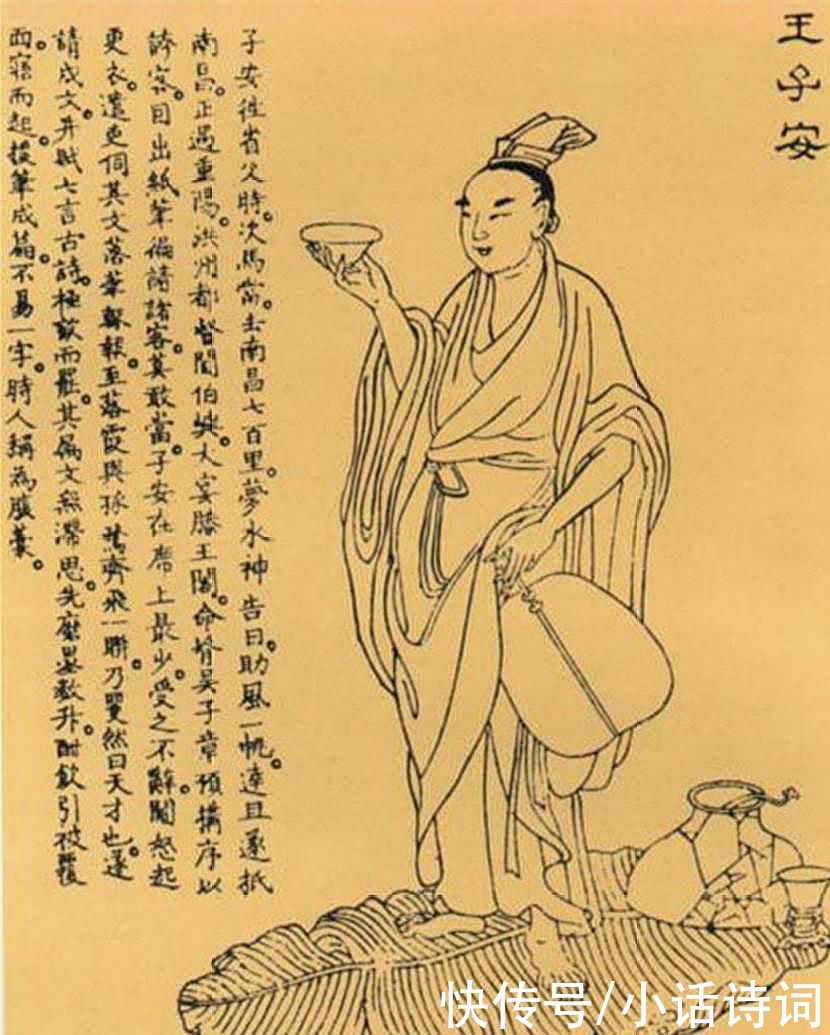 王子安
子安往省父時。次馬當。去南昌七百里。夢水神告曰。助風一帆。達旦遂抵
南昌。正遇重陽。洪州都督閻伯嶼。大宴滕王閣。命壻吳子章預搆序以
誇客。因出紙筆徧請諸客。莫敢當。子安在席上最少。受之不辭。閻怒起
更衣。遣吏伺其文落筆輒報。至落霞與孤鶩齊飛一聯。乃矍然曰天才也。遂
請成文。并賦七言古詩。極歡而罷。其屬文無滯思。先磨墨數升。酣飲引被覆
面。寤而起。援筆成篇。不易一字。時人稱為腹藁。
快传号/小话诗词